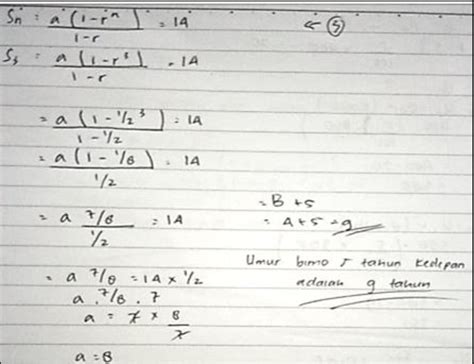 Sn = a (1-rⁿ) / 1-r = 14
← (5)
S3 = a (1-r³) / 1-r = 14
= a (1-½³) / 1-½ = 14
= a (1-1/8) / ½ = 14
= a 7/8 / ½ = 14
= a 7/8 = 14 x ½
a . 7/8 . 7
a = 7 x 8/7
a = 8
= B + 5
= 4 + 5 = 9
Umur bimo 5 tahun kedepan
adalah 9 tahun